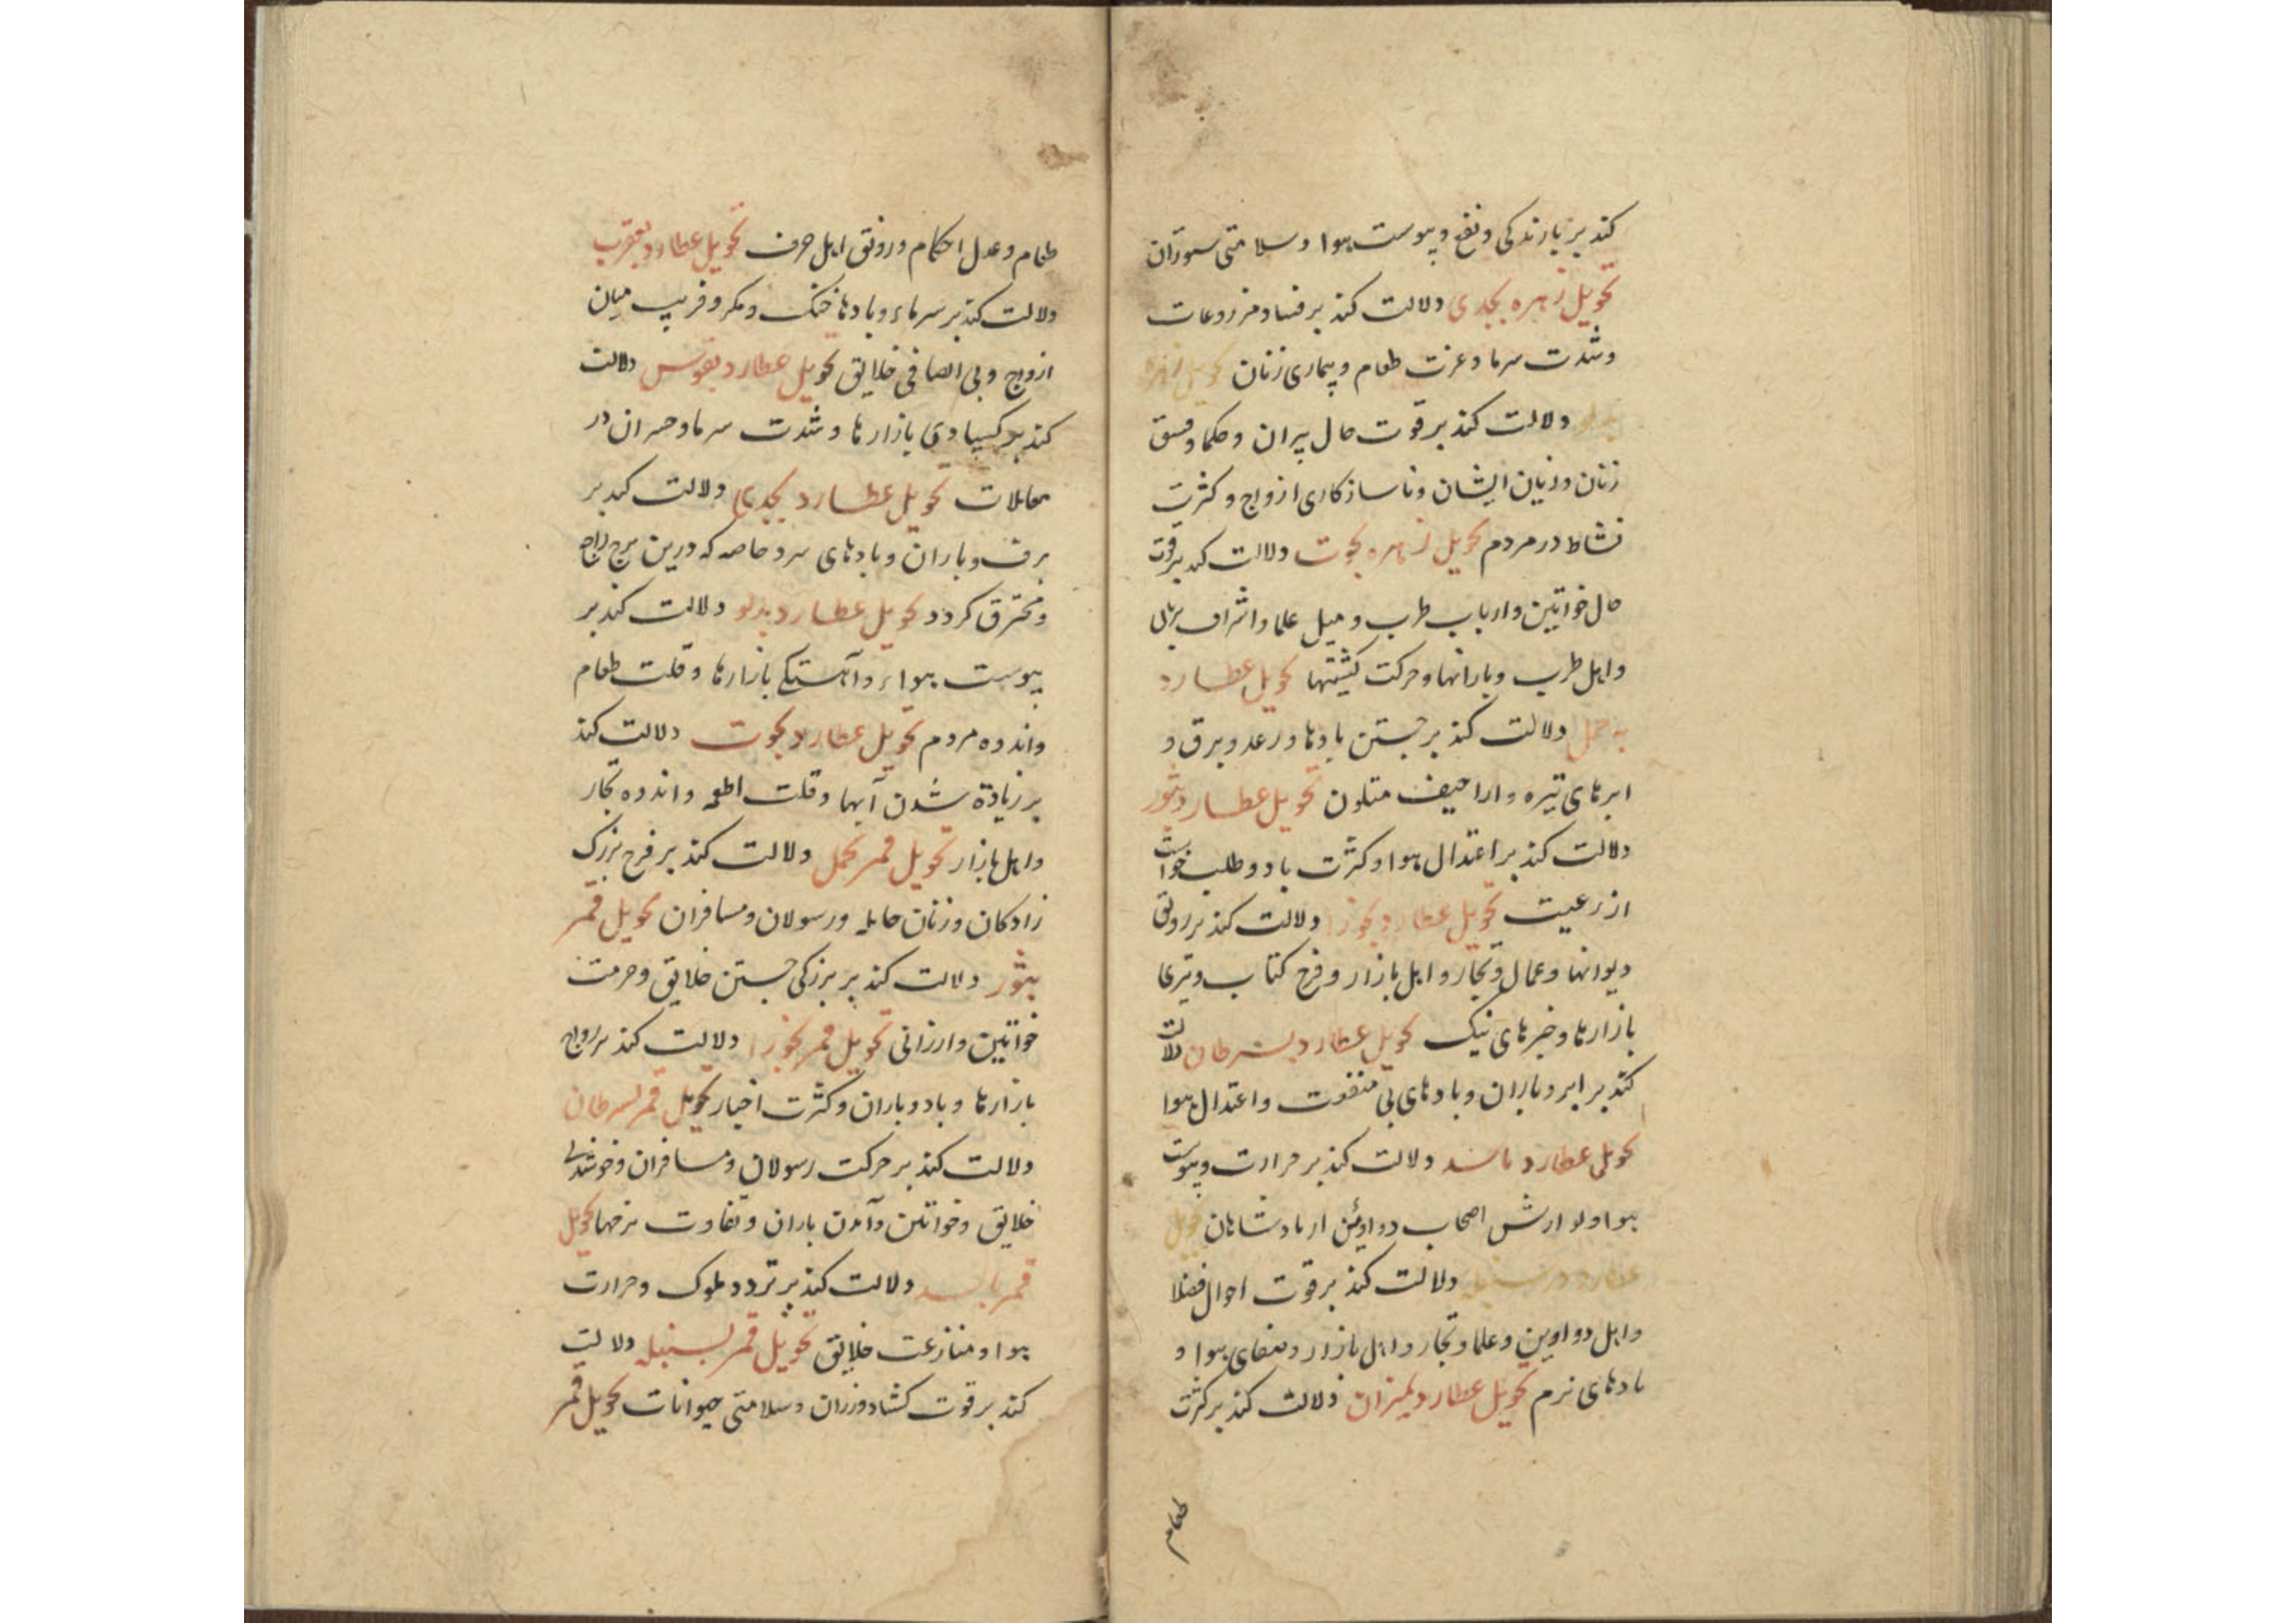 کند بر بارندگی و نفع و یبوست هوا و سلامتی ستوران
تحویل زهره بجدی دلالت کند بر فساد مزروعات
و شدت سرما و عزت طعام و بیماری زنان تحویل زهره
بدلو دلالت کند بر قوت حال پیران و حکما و فسق
زنان و زیان ایشان و ناسازکاری ازواج و کثرت
نشاط در مردم تحویل زهره بحوت دلالت کند بر قوت
حال خواتین و ارباب طرب و میل علما و اشراف
و اهل طرب و بارانها و حرکت کشتیها تحویل عطارد
به حمل دلالت کند بر جستن بادها و رعد و برق و
ابرهای تیره و اراجیف متلون تحویل عطارد بثور
دلالت کند بر اعتدال هوا و کثرت باد و طلب خواست
از رعیت تحویل عطارد بجوزا دلالت کند بر رونق
دیوانها و عمال و تجار و اهل بازار و فرح کتاب
بازارها و خبرهای نیک تحویل عطارد بسرطان دلالت
کند بر ابر و باران و بادهای بی منفعت و اعتدال هوا
تحویل عطارد باسد دلالت کند بر حرارت و یبوست
هوا و نوازش اصحاب دواوین از پادشاهان تحویل
عطارد در سنبله دلالت کند بر قوت احوال فضلا
و اهل دواوین و علما و تجار و اهل بازار و صفای هوا و
بادهای نرم تحویل عطارد بمیزان دلالت کند بر کثرت
طعام
طعام و عدل احکام و رونق اهل حرف تحویل عطارد بعقرب
دلالت کند بر سرماء و بادها خنک و مکر و فریب میان
ازواج و بی انصافی خلایق تحویل عطارد بقوس دلالت
کند بر کسادی بازارها و شدت سرما و خسران در
معاملات تحویل عطارد بجدی دلالت کند بر
برف و باران و بادهای سرد خاصه که درین برج راجع
و محترق کردد تحویل عطارد بدلو دلالت کند بر
یبوست هواء و آهستکی بازارها و قلت طعام
و اندوه مردم تحویل عطارد بحوت دلالت کند
بر زیادة شدن آبها و قلت اطعمه و اندوه تجار
و اهل بازار تحویل قمر بحمل دلالت کند بر فرح بزرک
زادکان و زنان حامله و رسولان و مسافران تحویل قمر
بثور دلالت کند بر بزرکی جستن خلایق و حرمت
خواتین و ارزانی تحویل قمر بجوزا دلالت کند بر رواج
بازارها و باد و باران و کثرت اخبار تحویل قمر بسرطان
دلالت کند بر حرکت رسولان و مسافران و خوشدلی
خلایق و خواتین و آمدن باران و تفاوت نرخها تحویل
قمر باسد دلالت کند بر تردد ملوک و حرارت
هوا و منازعت خلایق تحویل قمر بسنبله دلالت
کند بر قوت کشاورزان و سلامتی حیوانات تحویل قمر